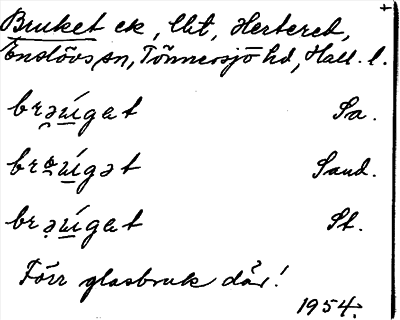 Bruket ek, lht, Hertered,
Enslövs sn, Tönnersjö hd, Hall. l.
brəu̯gət Sa.
brəu̯gət Sand.
brəu̯gət St.
Förr glasbruk där!
1954.